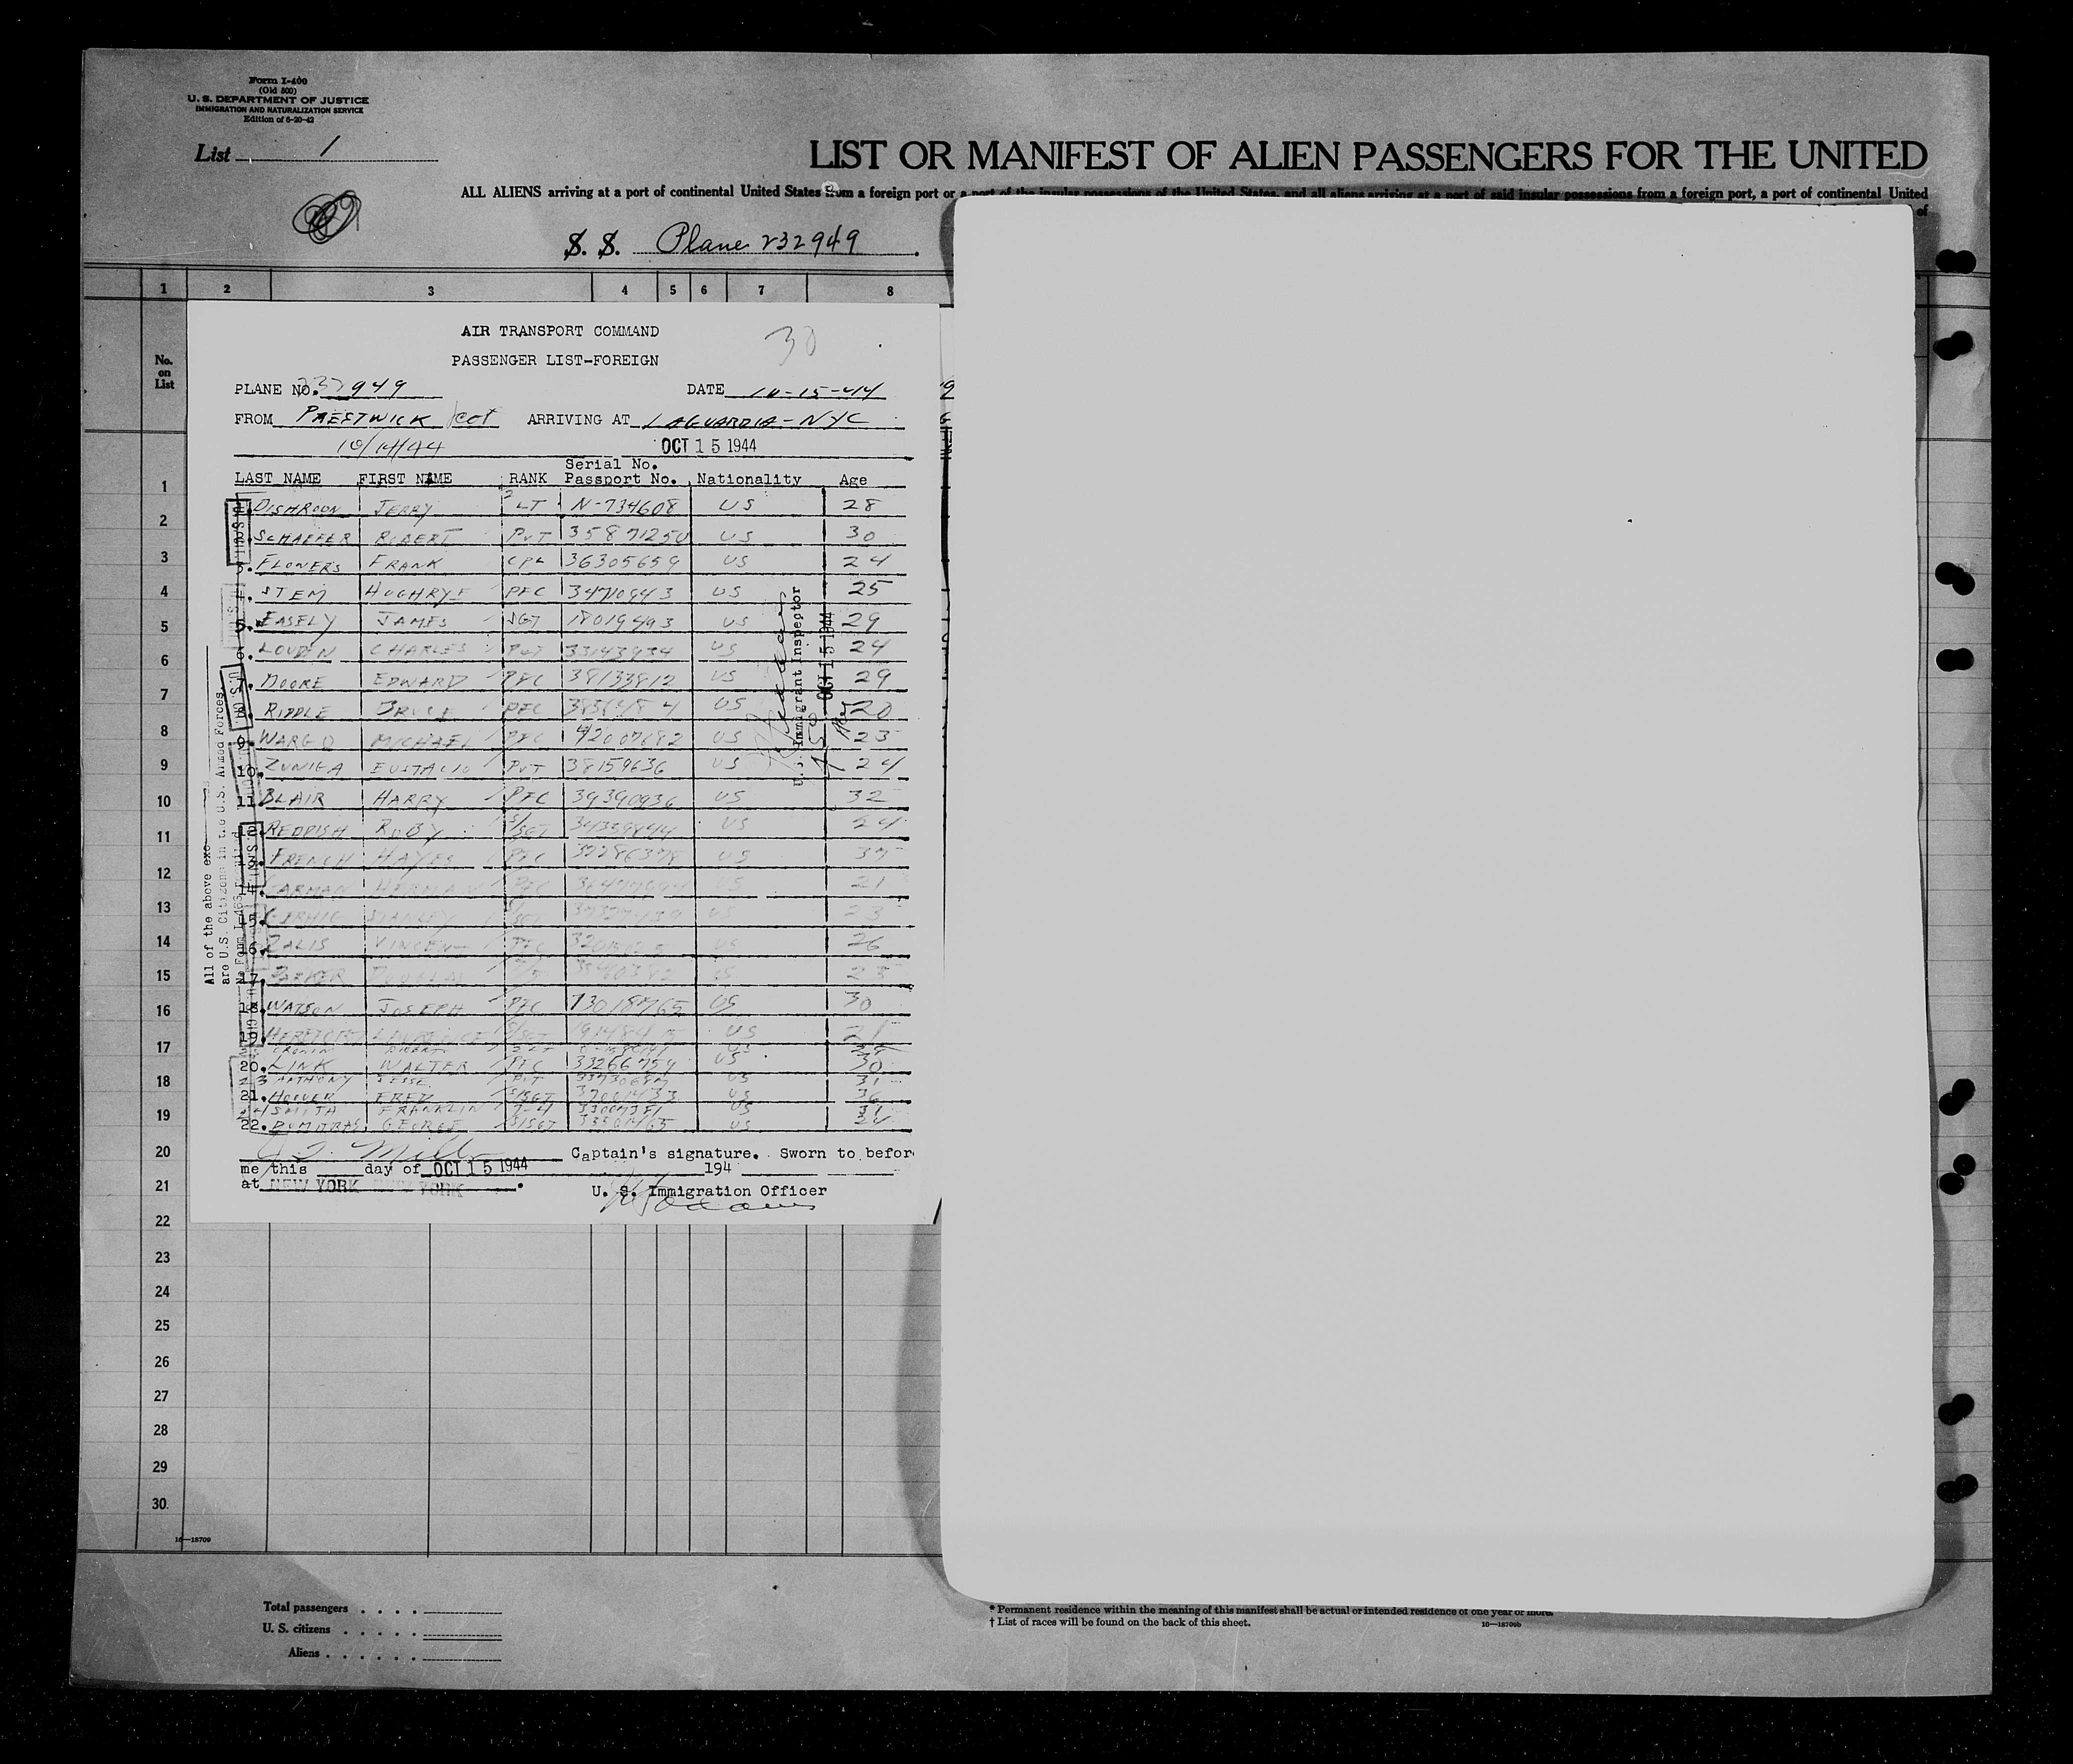 Form I-400
(Old 500)
U. S. DEPARTMENT OF JUSTICE
IMMIGRATION AND NATURALIZATION SERVICE
Edition of 6-20-42
List 1
LIST OR MANIFEST OF ALIEN PASSENGERS FOR THE UNITED
ALL ALIENS arriving at a port of continental United States from a foreign port or a port of the insular possessions of the United States, and all aliens arriving at a port of said insular possessions from a foreign port, a port of continental United
of
S. S. Plane 232949
1 2 3 4 5 6 7 8
No. on List
AIR TRANSPORT COMMAND
30
PASSENGER LIST-FOREIGN
PLANE NO. 232949 DATE 10-15-44
FROM PRESTWICK Scot ARRIVING AT LAGUARDIA-NYC
10/14/44 OCT 15 1944
LAST NAME FIRST NAME RANK Serial No. Passport No. Nationality Age
1. DISHROON JERRY 2 LT N-734608 US 28
2. SCHAEFER ROBERT PVT 35871250 US 30
3. FLOWERS FRANK CPL 36305659 US 24
4. STEM PFC 34710943 US 25
5. EASELY JAMES SGT 18019493 US 29
6. LOUDEN CHARLES PVT 33143934 US 24
7. MOORE EDWARD PFC 38133812 US 29
8. RIPPLE BRUCE PFC US 20
9. WARGO MICHAEL PFC 42007682 US 23
10. ZUNIGA EUSTACIO PVT 38159636 US 24
11. BLAIR HARRY PFC 39390936 US 32
12. REDDISH RUBY S/SGT 34339844 US 24
13. FRENCH HAYES PFC 32286378 US 37
14. GARMAN HERMAN PFC US 21
15. STANLEY S/SGT US 23
16. ZALIS VINCENT PFC US 26
17. DOUGLAS US 23
18. WATSON JOSEPH PFC 13018765 US 30
19. LAURENCE S/SGT US 21
CRONIN US
20. LINK WALTER PFC 33266759 US 30
23 ANTHONY JESSE PVT US 31
21. HOOVER FRED S/SGT 37001433 US 36
24 SMITH FRANKLIN T-4 US 31
22. GEORGE S/SGT 33501465 US 24
Captain's signature. Sworn to befor
me this day of OCT 15 1944 194
at NEW YORK NEW YORK
U. S. Immigration Officer
All of the above
are U.S. Citizens in the U.S. Armed Forces.
U.S. Immigrant Inspector
OCT 15 1944
1
2
3
4
5
6
7
8
9
10
11
12
13
14
15
16
17
18
19
20
21
22
23
24
25
26
27
28
29
30
16—18709
Total passengers
U. S. citizens
Aliens
* Permanent residence within the meaning of this manifest shall be actual or intended residence of one year or more.
† List of races will be found on the back of this sheet.
16—18709b